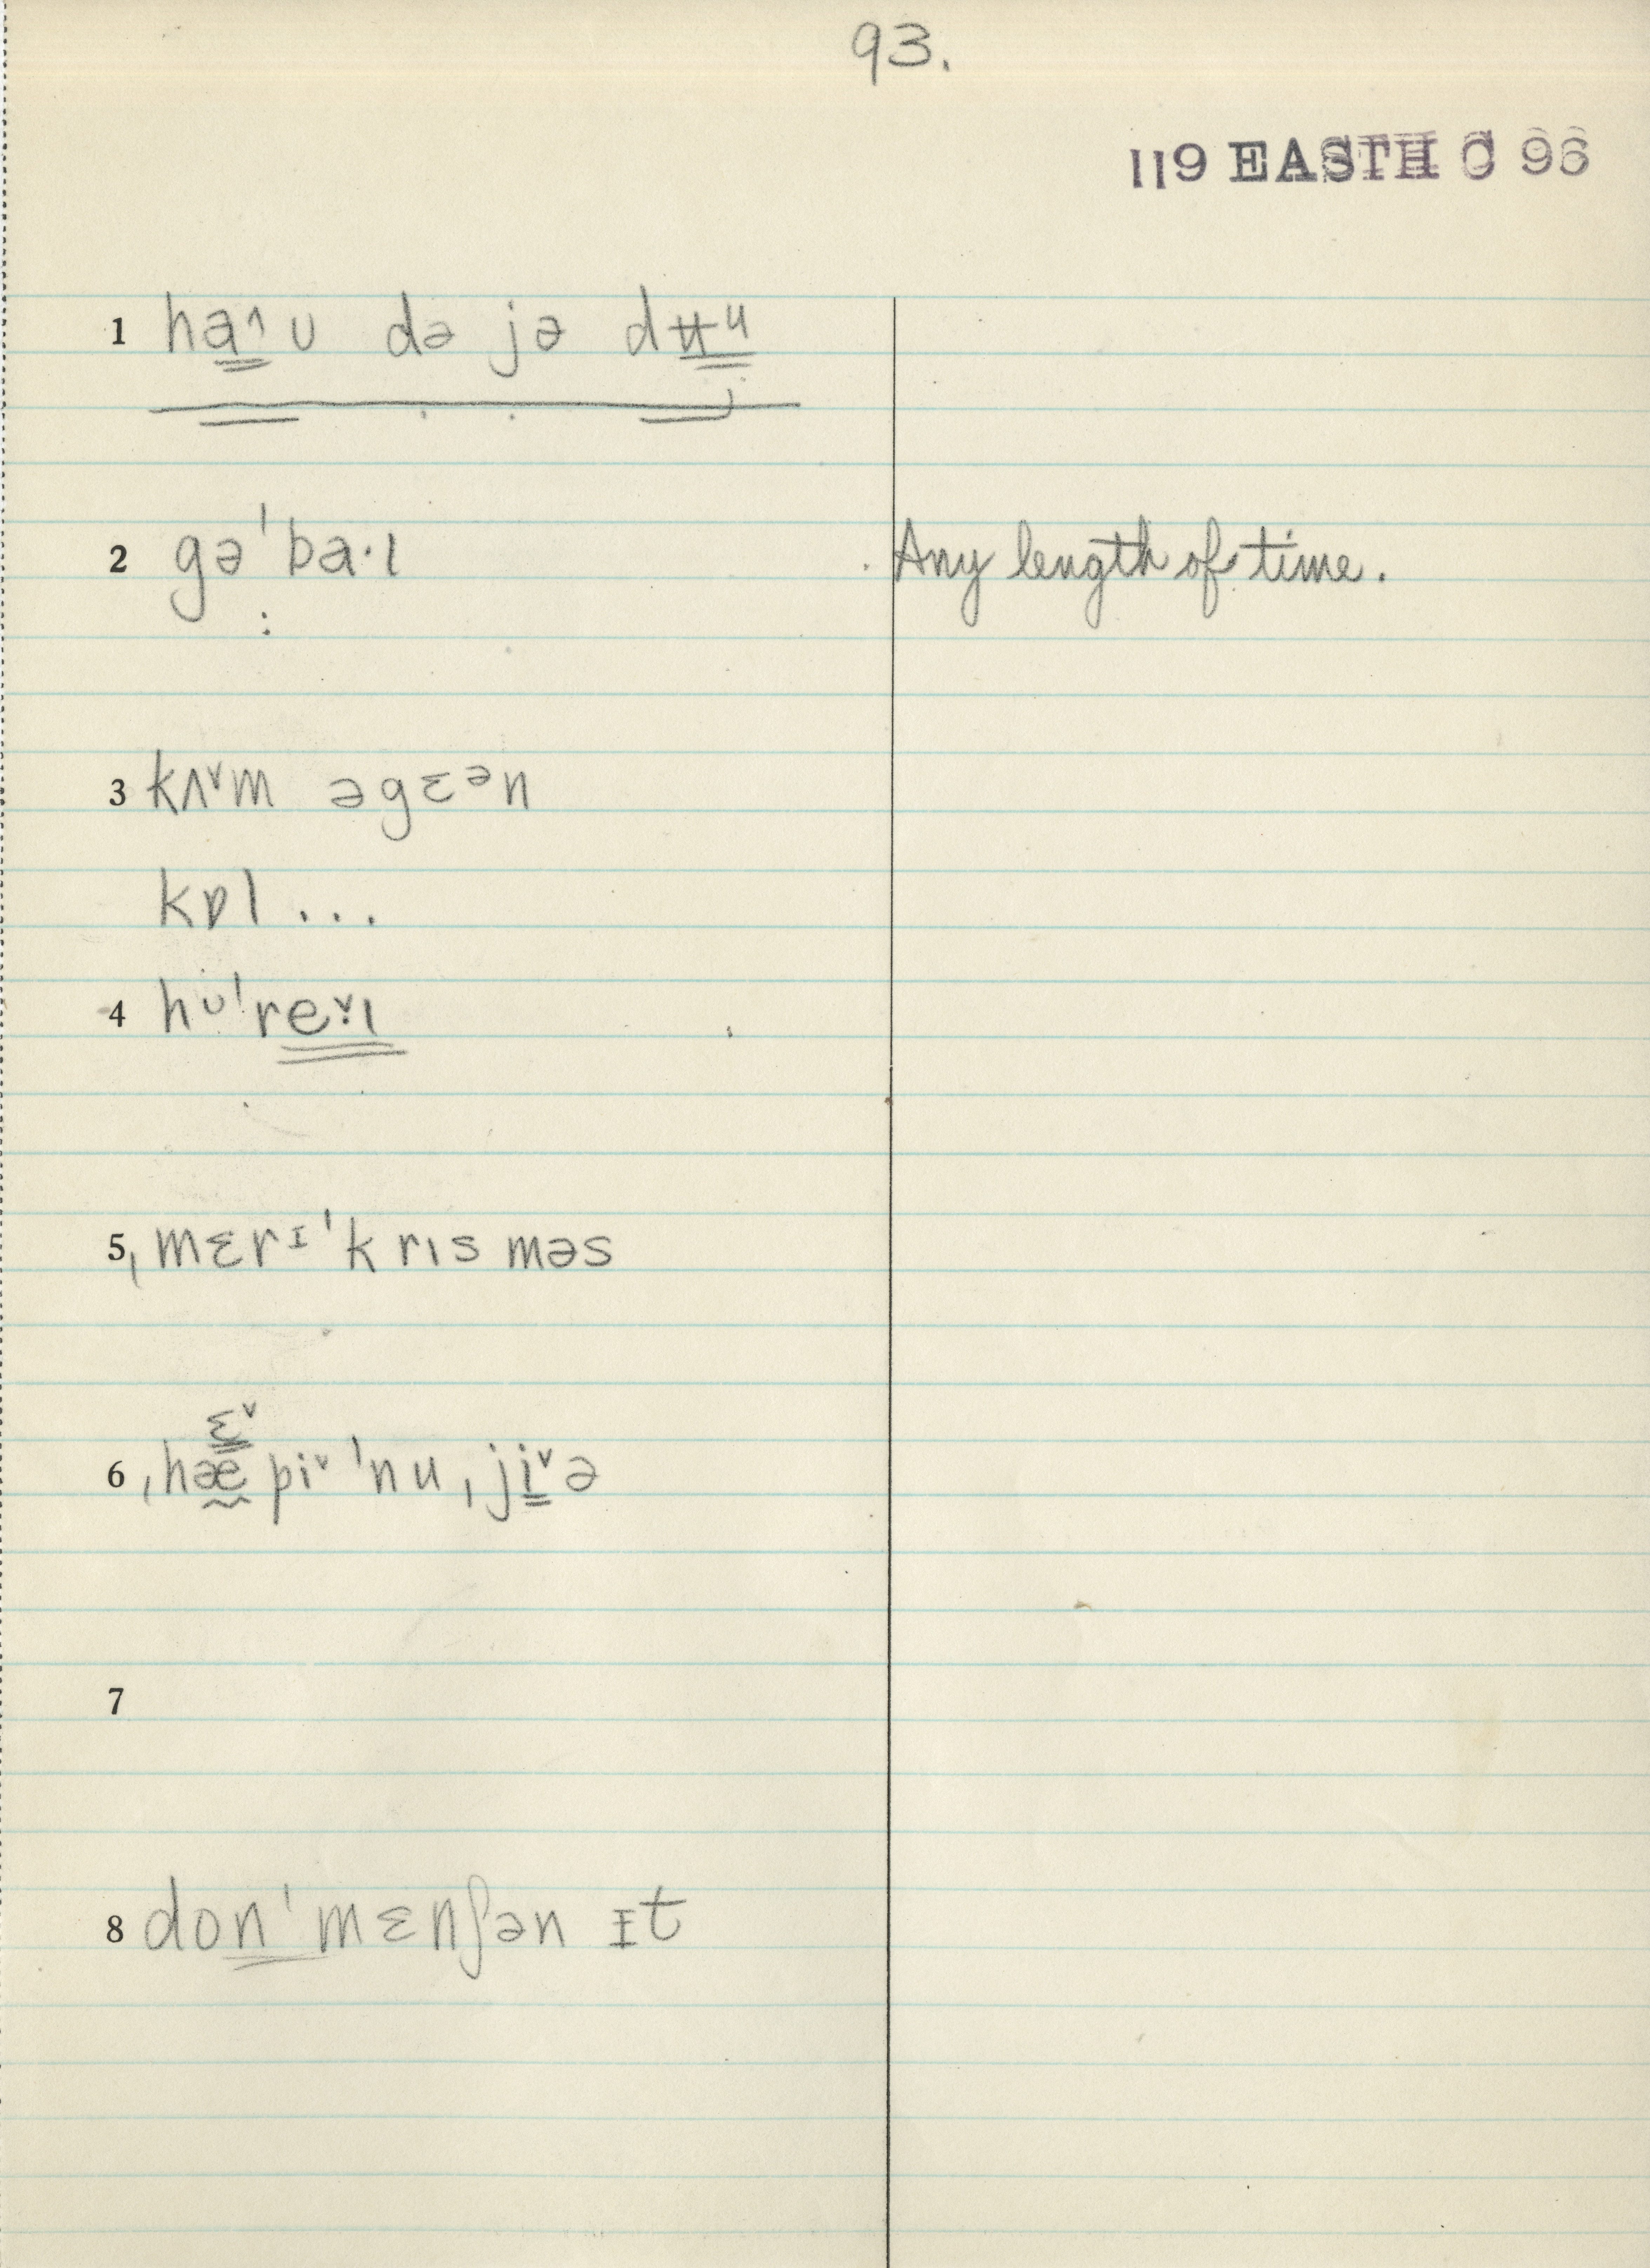 93.
119 EASTH C 96
1 ha˄ʊ də jə dʉᵘ
2 gə'ba·ɪ Any length of time.
3 kʌ˅m əgɛᵊn
kɒl ...
4 hʊ're˅·ɪ
5 ˌmɛrɪ'krɪsməs
ɛ˅
6 ˌhæpi˅ 'nu ˌji˅ə
7
8 don'mɛnʃən ɪt